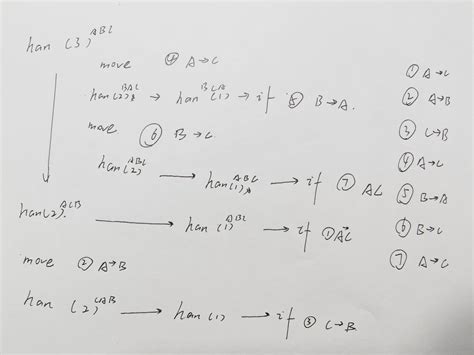 han (3) ABC
move ④ A→C ① A→C
han(2) BAC → han (1) BCA → if ⑤ B→A. ② A→B
move ⑥ B→C ③ C→B
④ A→C
han(2) ABC → han(1) ABC → if ⑦ AC ⑤ B→A
han(2) ACB → han (1) ABC → if ① AC ⑥ B→C
move ② A→B ⑦ A→C
han (2) CAB → han (1) → if ③ C→B